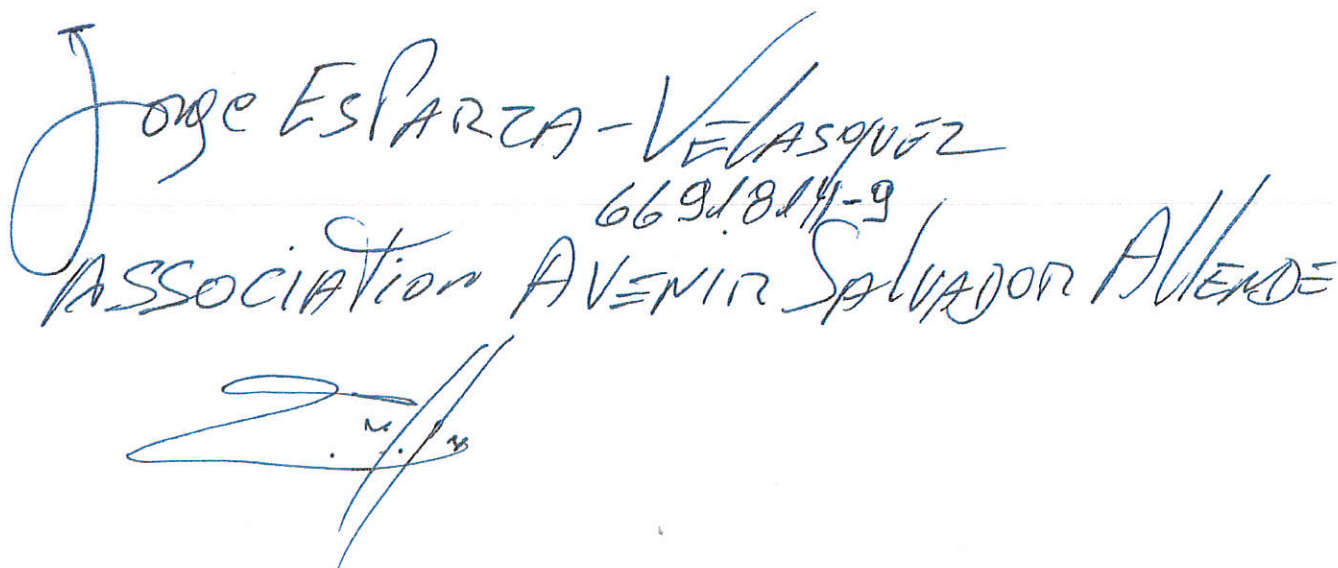 Jorge ESPARZA-VELASQUEZ
ASSOCIATION AVENIR SALVADOR ALLENDE